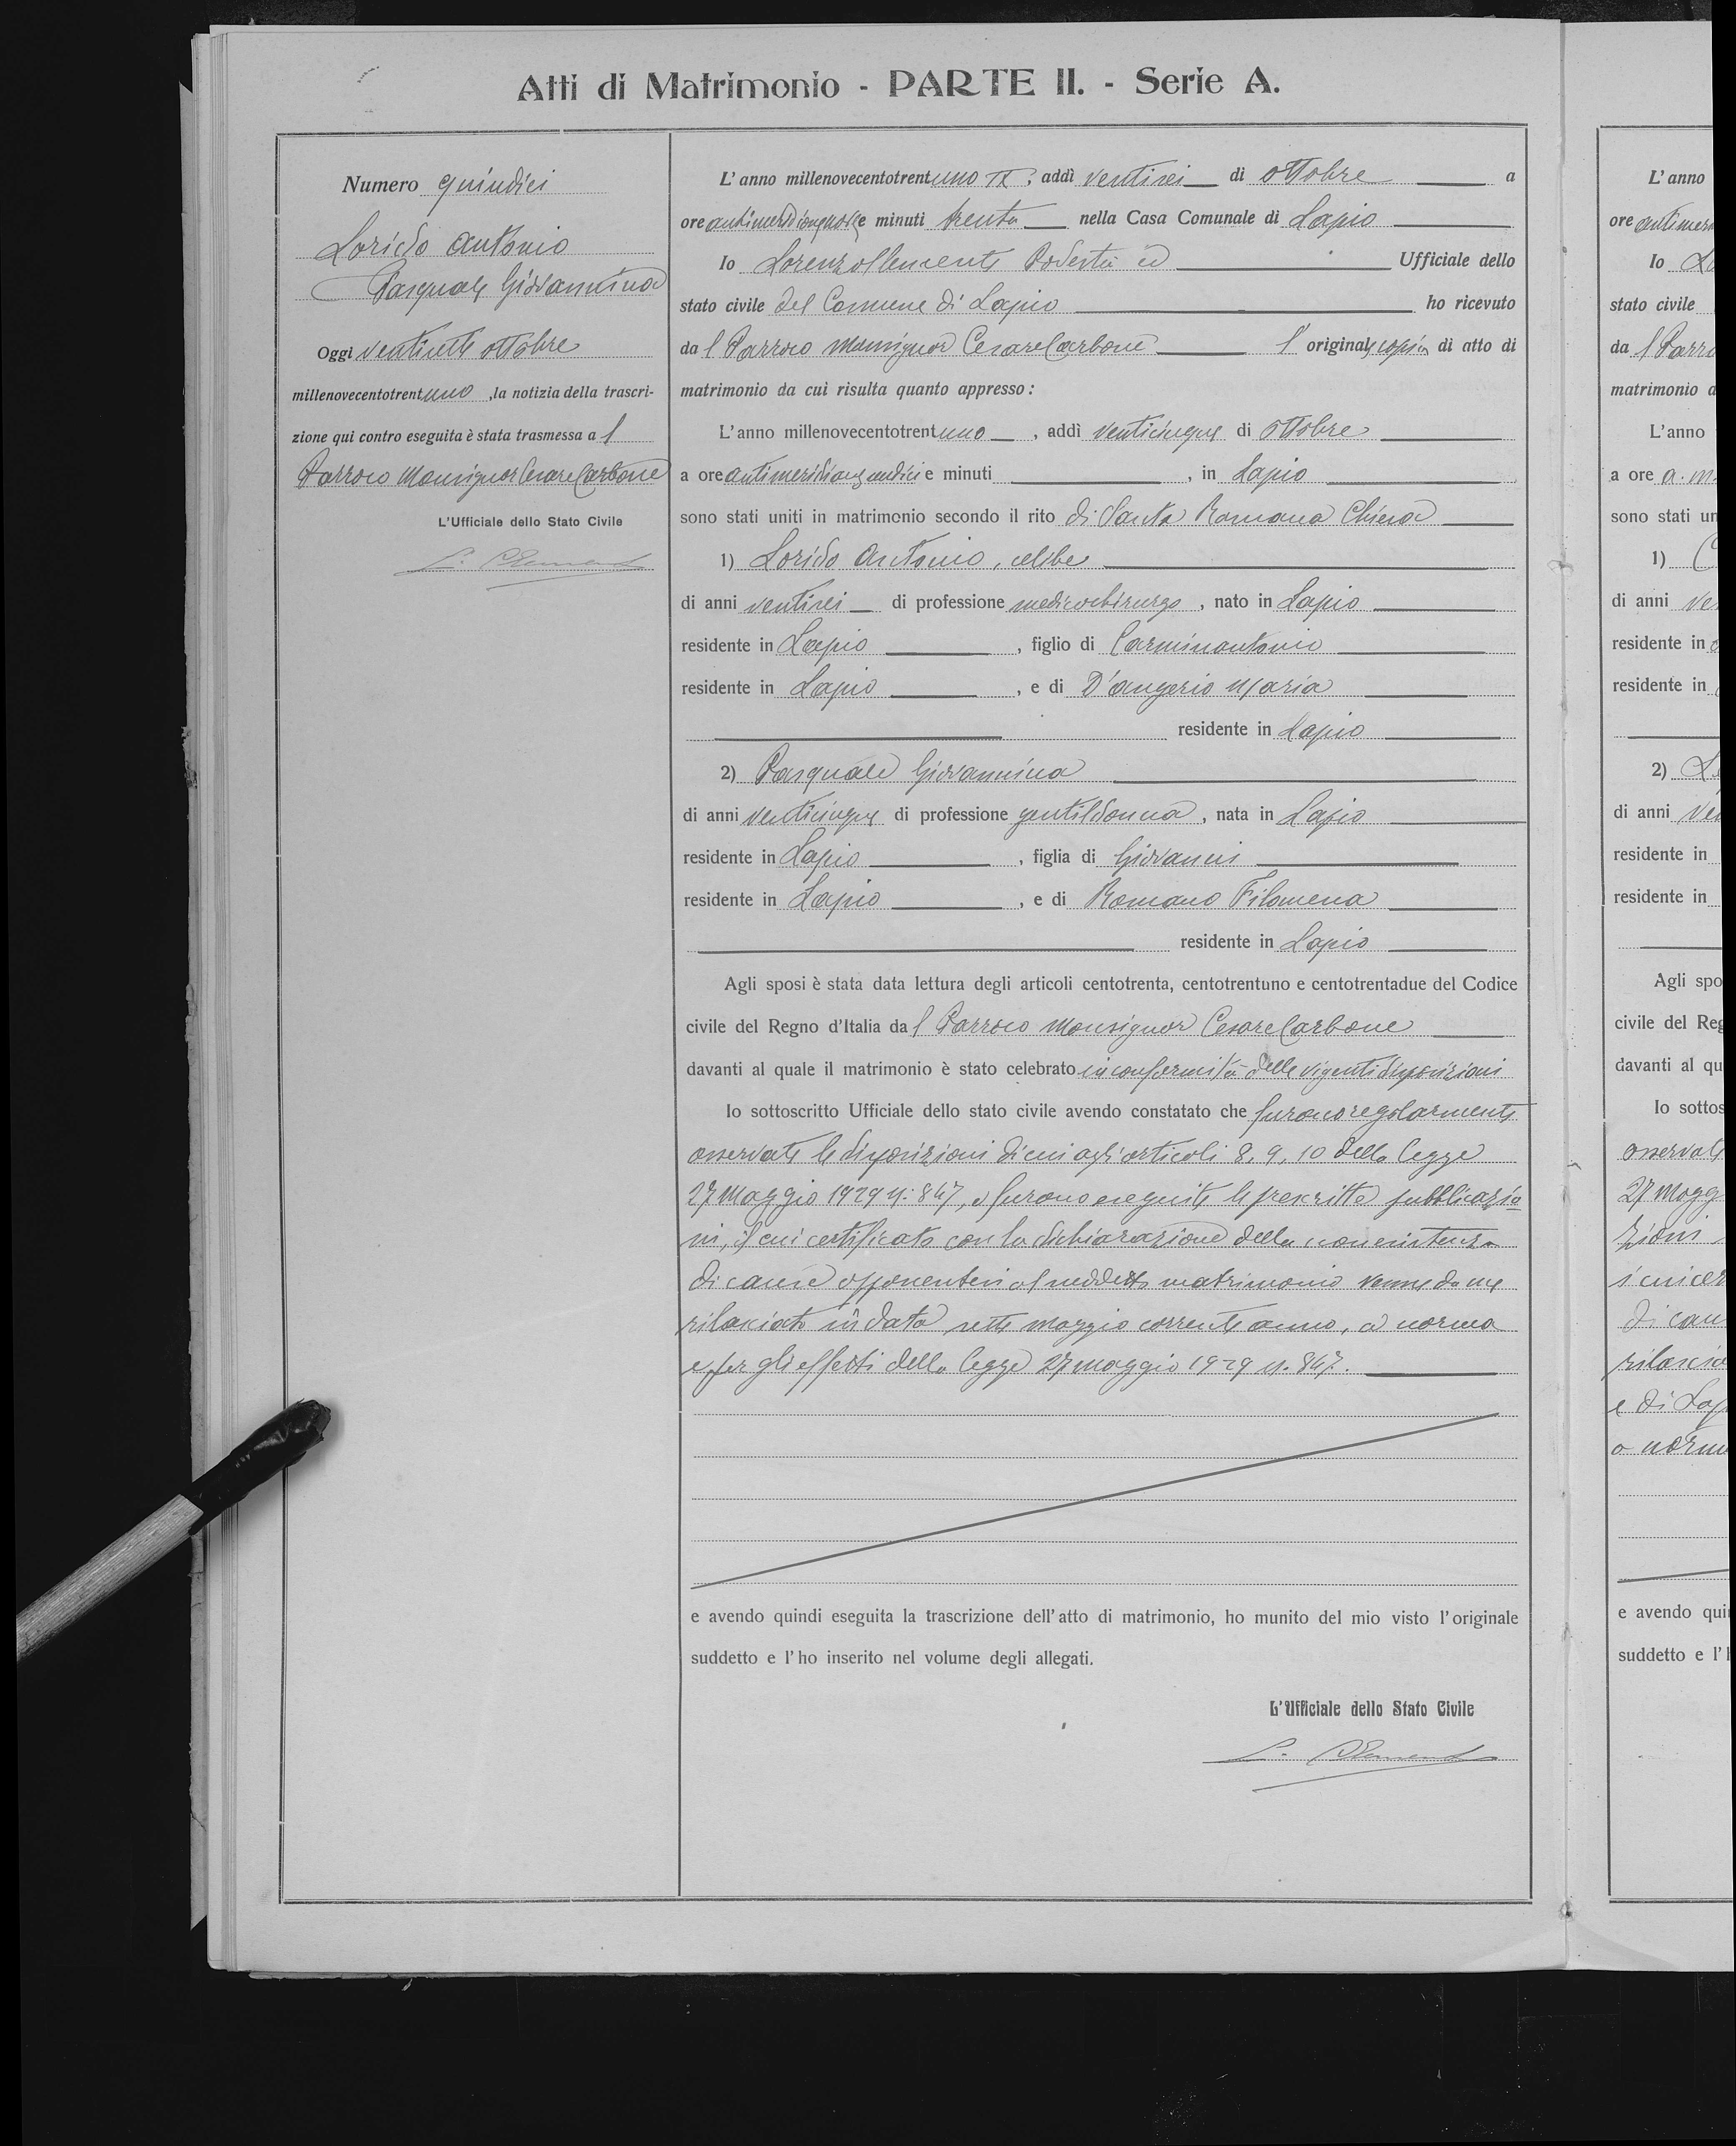 Atti di Matrimonio - PARTE II. - Serie A.
Numero quindici
Lorido Antonio
Pasquale Giovannina
Oggi ventisette ottobre
millenovecentotrentuno, la notizia della trascri-
zione qui contro eseguita è stata trasmessa a l
Parroco Monsignor Cesare Carbone
L'Ufficiale dello Stato Civile
L. Clemente
L'anno millenovecentotrentuno IX, addì ventisei di ottobre a
ore antimeridiane nove e minuti trenta nella Casa Comunale di Lapio
Io Lorenzo Clemente Podestà ed Ufficiale dello
stato civile del Comune di Lapio ho ricevuto
da l Parroco Monsignor Cesare Carbone l' original copia di atto di
matrimonio da cui risulta quanto appresso:
L'anno millenovecentotrentuno, addì venticinque di ottobre
a ore antimeridiane undici e minuti , in Lapio
sono stati uniti in matrimonio secondo il rito di Santa Romana Chiesa
1) Lorido Antonio, celibe
di anni ventisei di professione medico chirurgo, nato in Lapio
residente in Lapio, figlio di Carminantonio
residente in Lapio, e di D'Angerio Maria
residente in Lapio
2) Pasquale Giovannina
di anni venticinque di professione gentildonna, nata in Lapio
residente in Lapio, figlia di Giovanni
residente in Lapio, e di Romano Filomena
residente in Lapio
Agli sposi è stata data lettura degli articoli centotrenta, centotrentuno e centotrentadue del Codice
civile del Regno d'Italia da l Parroco Monsignor Cesare Carbone
davanti al quale il matrimonio è stato celebrato in conformità delle vigenti disposizioni
Io sottoscritto Ufficiale dello stato civile avendo constatato che furono regolarmente
osservate le disposizioni di cui agli articoli 8, 9, 10 della legge
27 Maggio 1929 N: 847, e furono eseguite le prescritte pubblicazio
ni, il cui certificato con la dichiarazione della non esistenza
di cause opponentesi al suddetto matrimonio venne da me
rilasciato in data sette Maggio corrente anno, a norma
e per gli effetti della legge 27 maggio 1929 N. 847.
e avendo quindi eseguita la trascrizione dell'atto di matrimonio, ho munito del mio visto l'originale
suddetto e l'ho inserito nel volume degli allegati.
L'Ufficiale dello Stato Civile
L. Clemente
L'anno
ore antimeri
Io L
stato civile
da l Parro
matrimonio d
L'anno
a ore a. m.
sono stati un
1)
di anni ve
residente in
residente in
2)
di anni ve
residente in
residente in
Agli spo
civile del Reg
davanti al qu
Io sottos
osservate
27 Magg
zioni
di cau
rilascia
e di Lap
a norm
e avendo qui
suddetto e l'